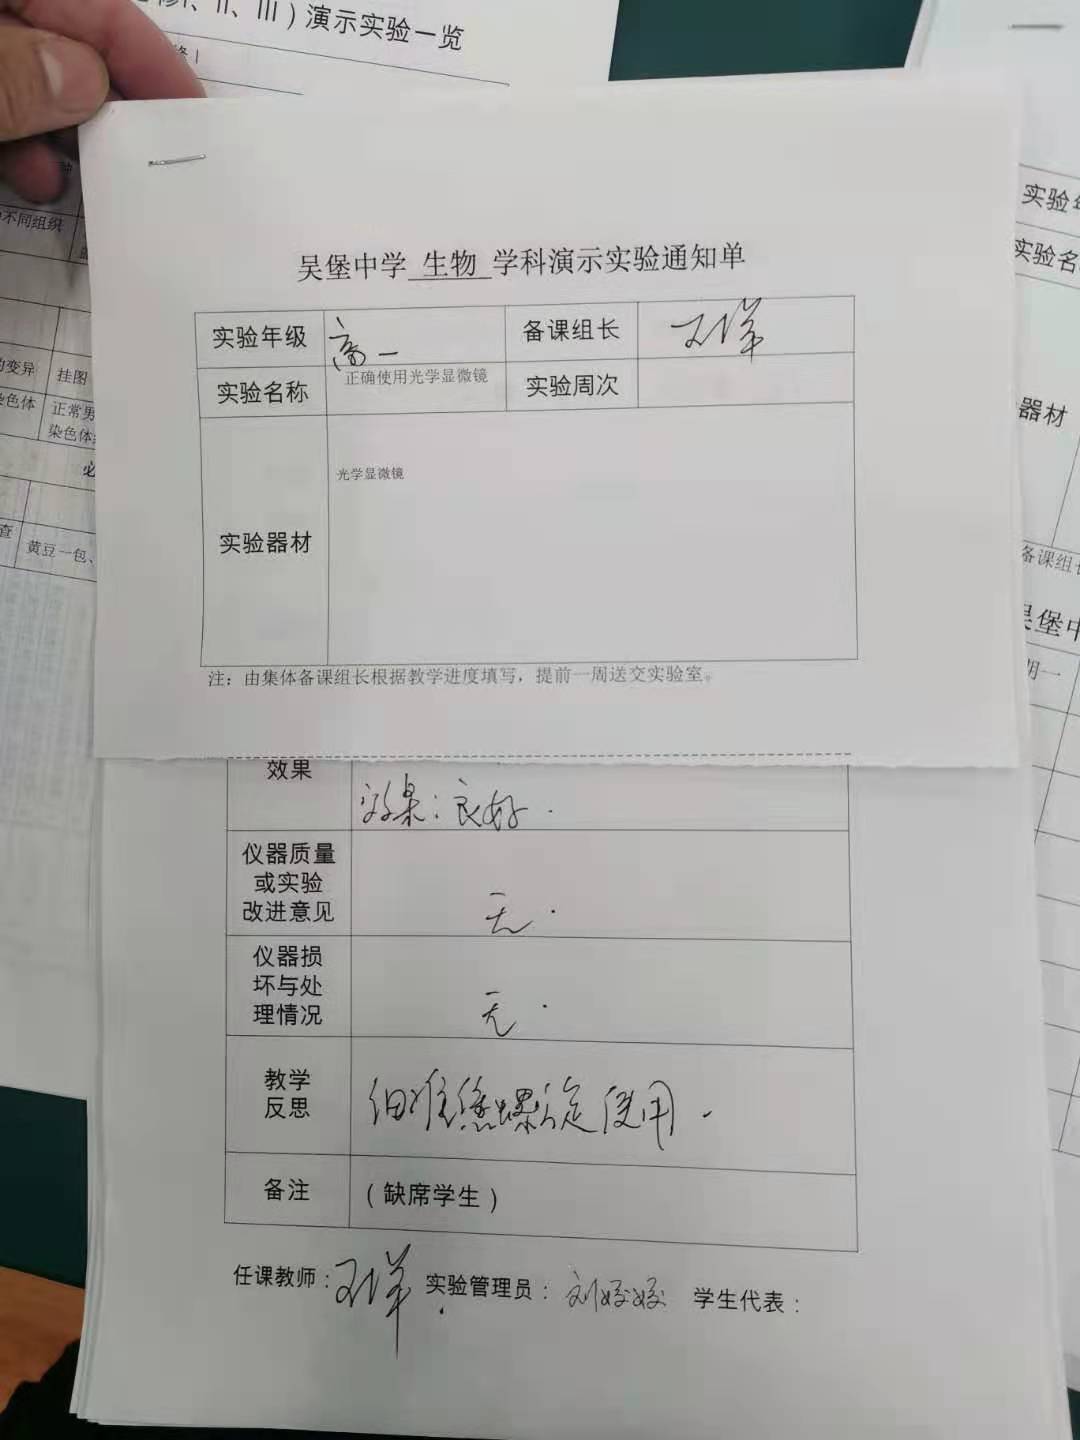 修I、II、III）演示实验一览
不同组织
变异
挂图
染色体
正常男
染色体
黄豆一包、
吴堡中学 生物 学科演示实验通知单
实验年级 高一 备课组长
实验名称 正确使用光学显微镜 实验周次
实验器材 光学显微镜
注：由集体备课组长根据教学进度填写，提前一周送交实验室。
效果 效果：良好.
仪器质量
或实验
改进意见 无.
仪器损
坏与处
理情况 无.
教学
反思 细准焦螺旋使用.
备注 （缺席学生）
任课教师： 实验管理员：刘姣姣 学生代表：
实验
实验名
器材
备课组长
吴堡中